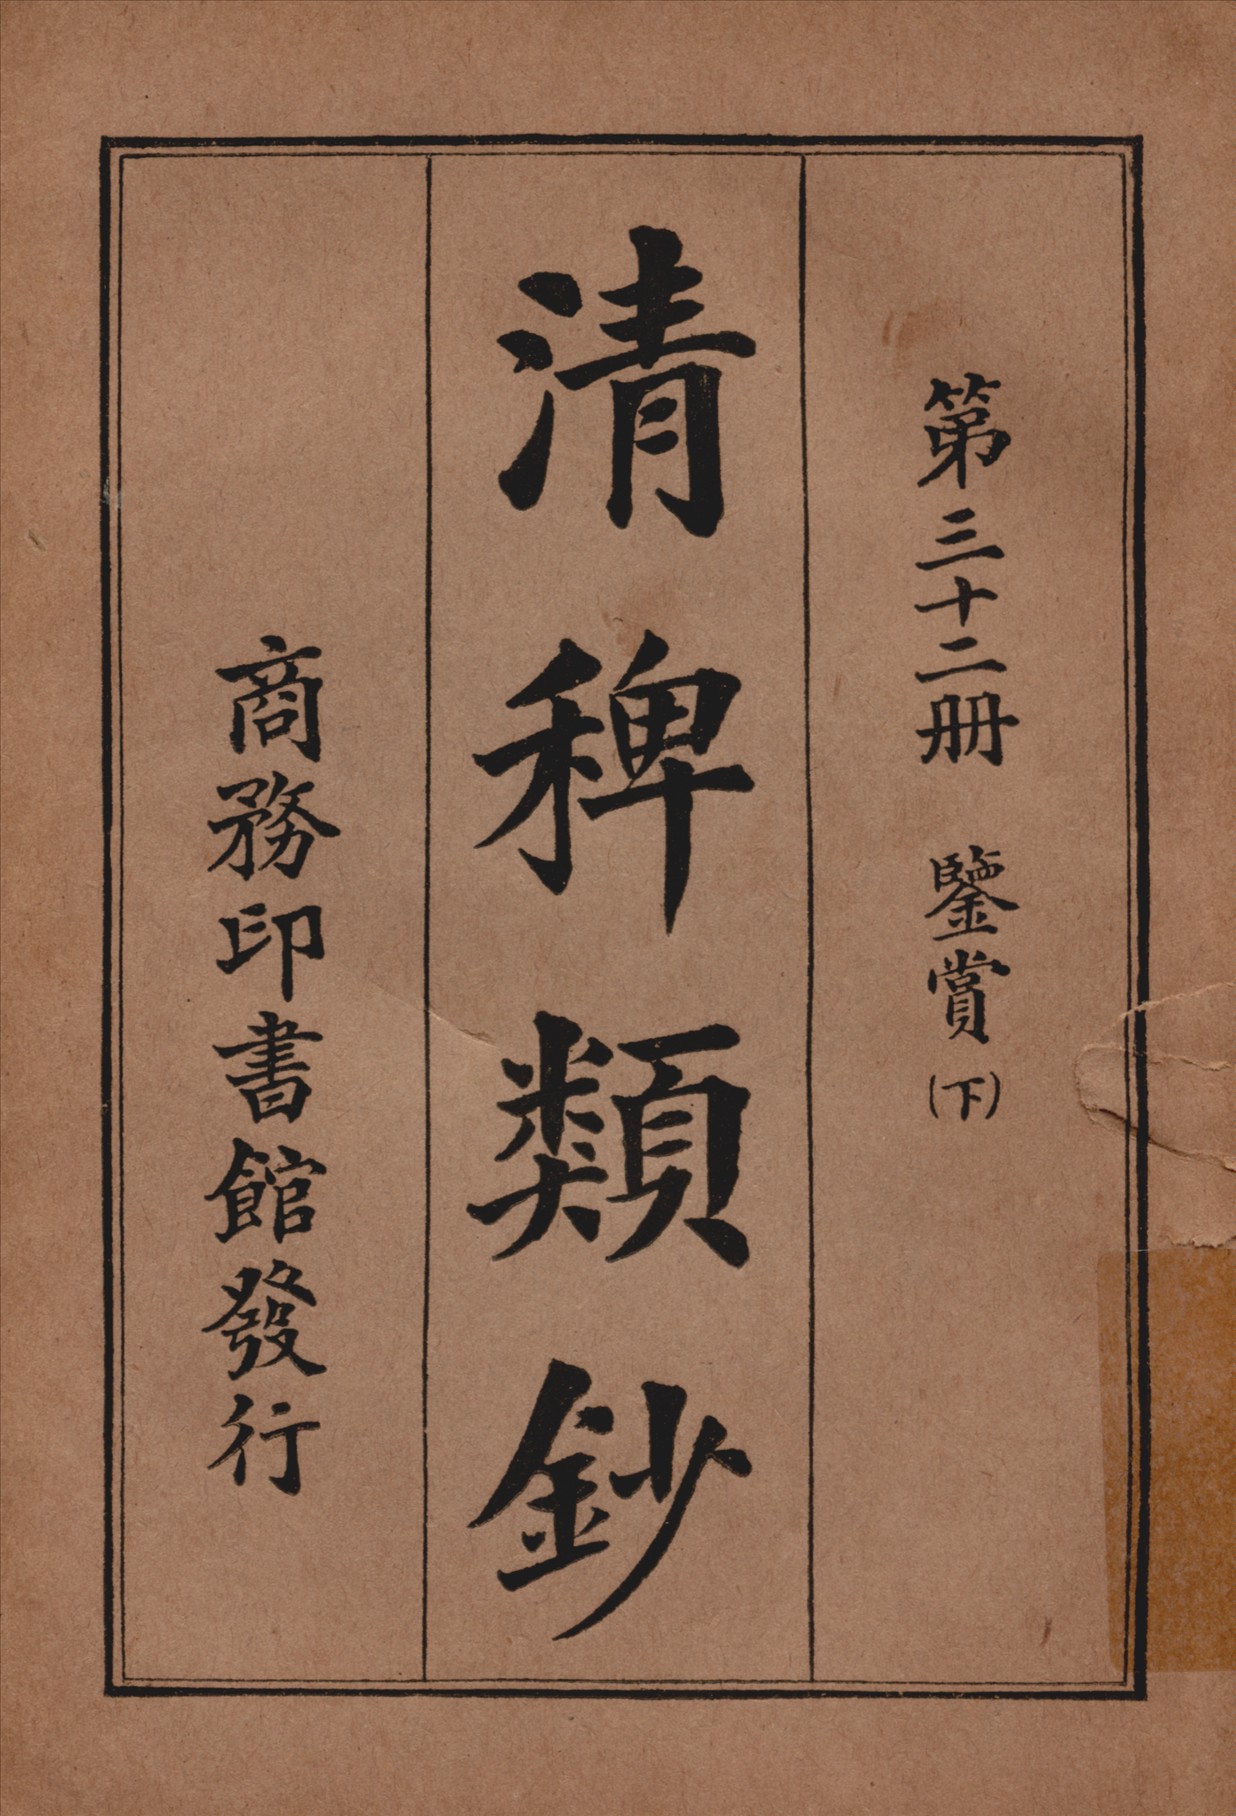 第三十二册　鑒賞(下)
清稗類鈔
商務印書館發行